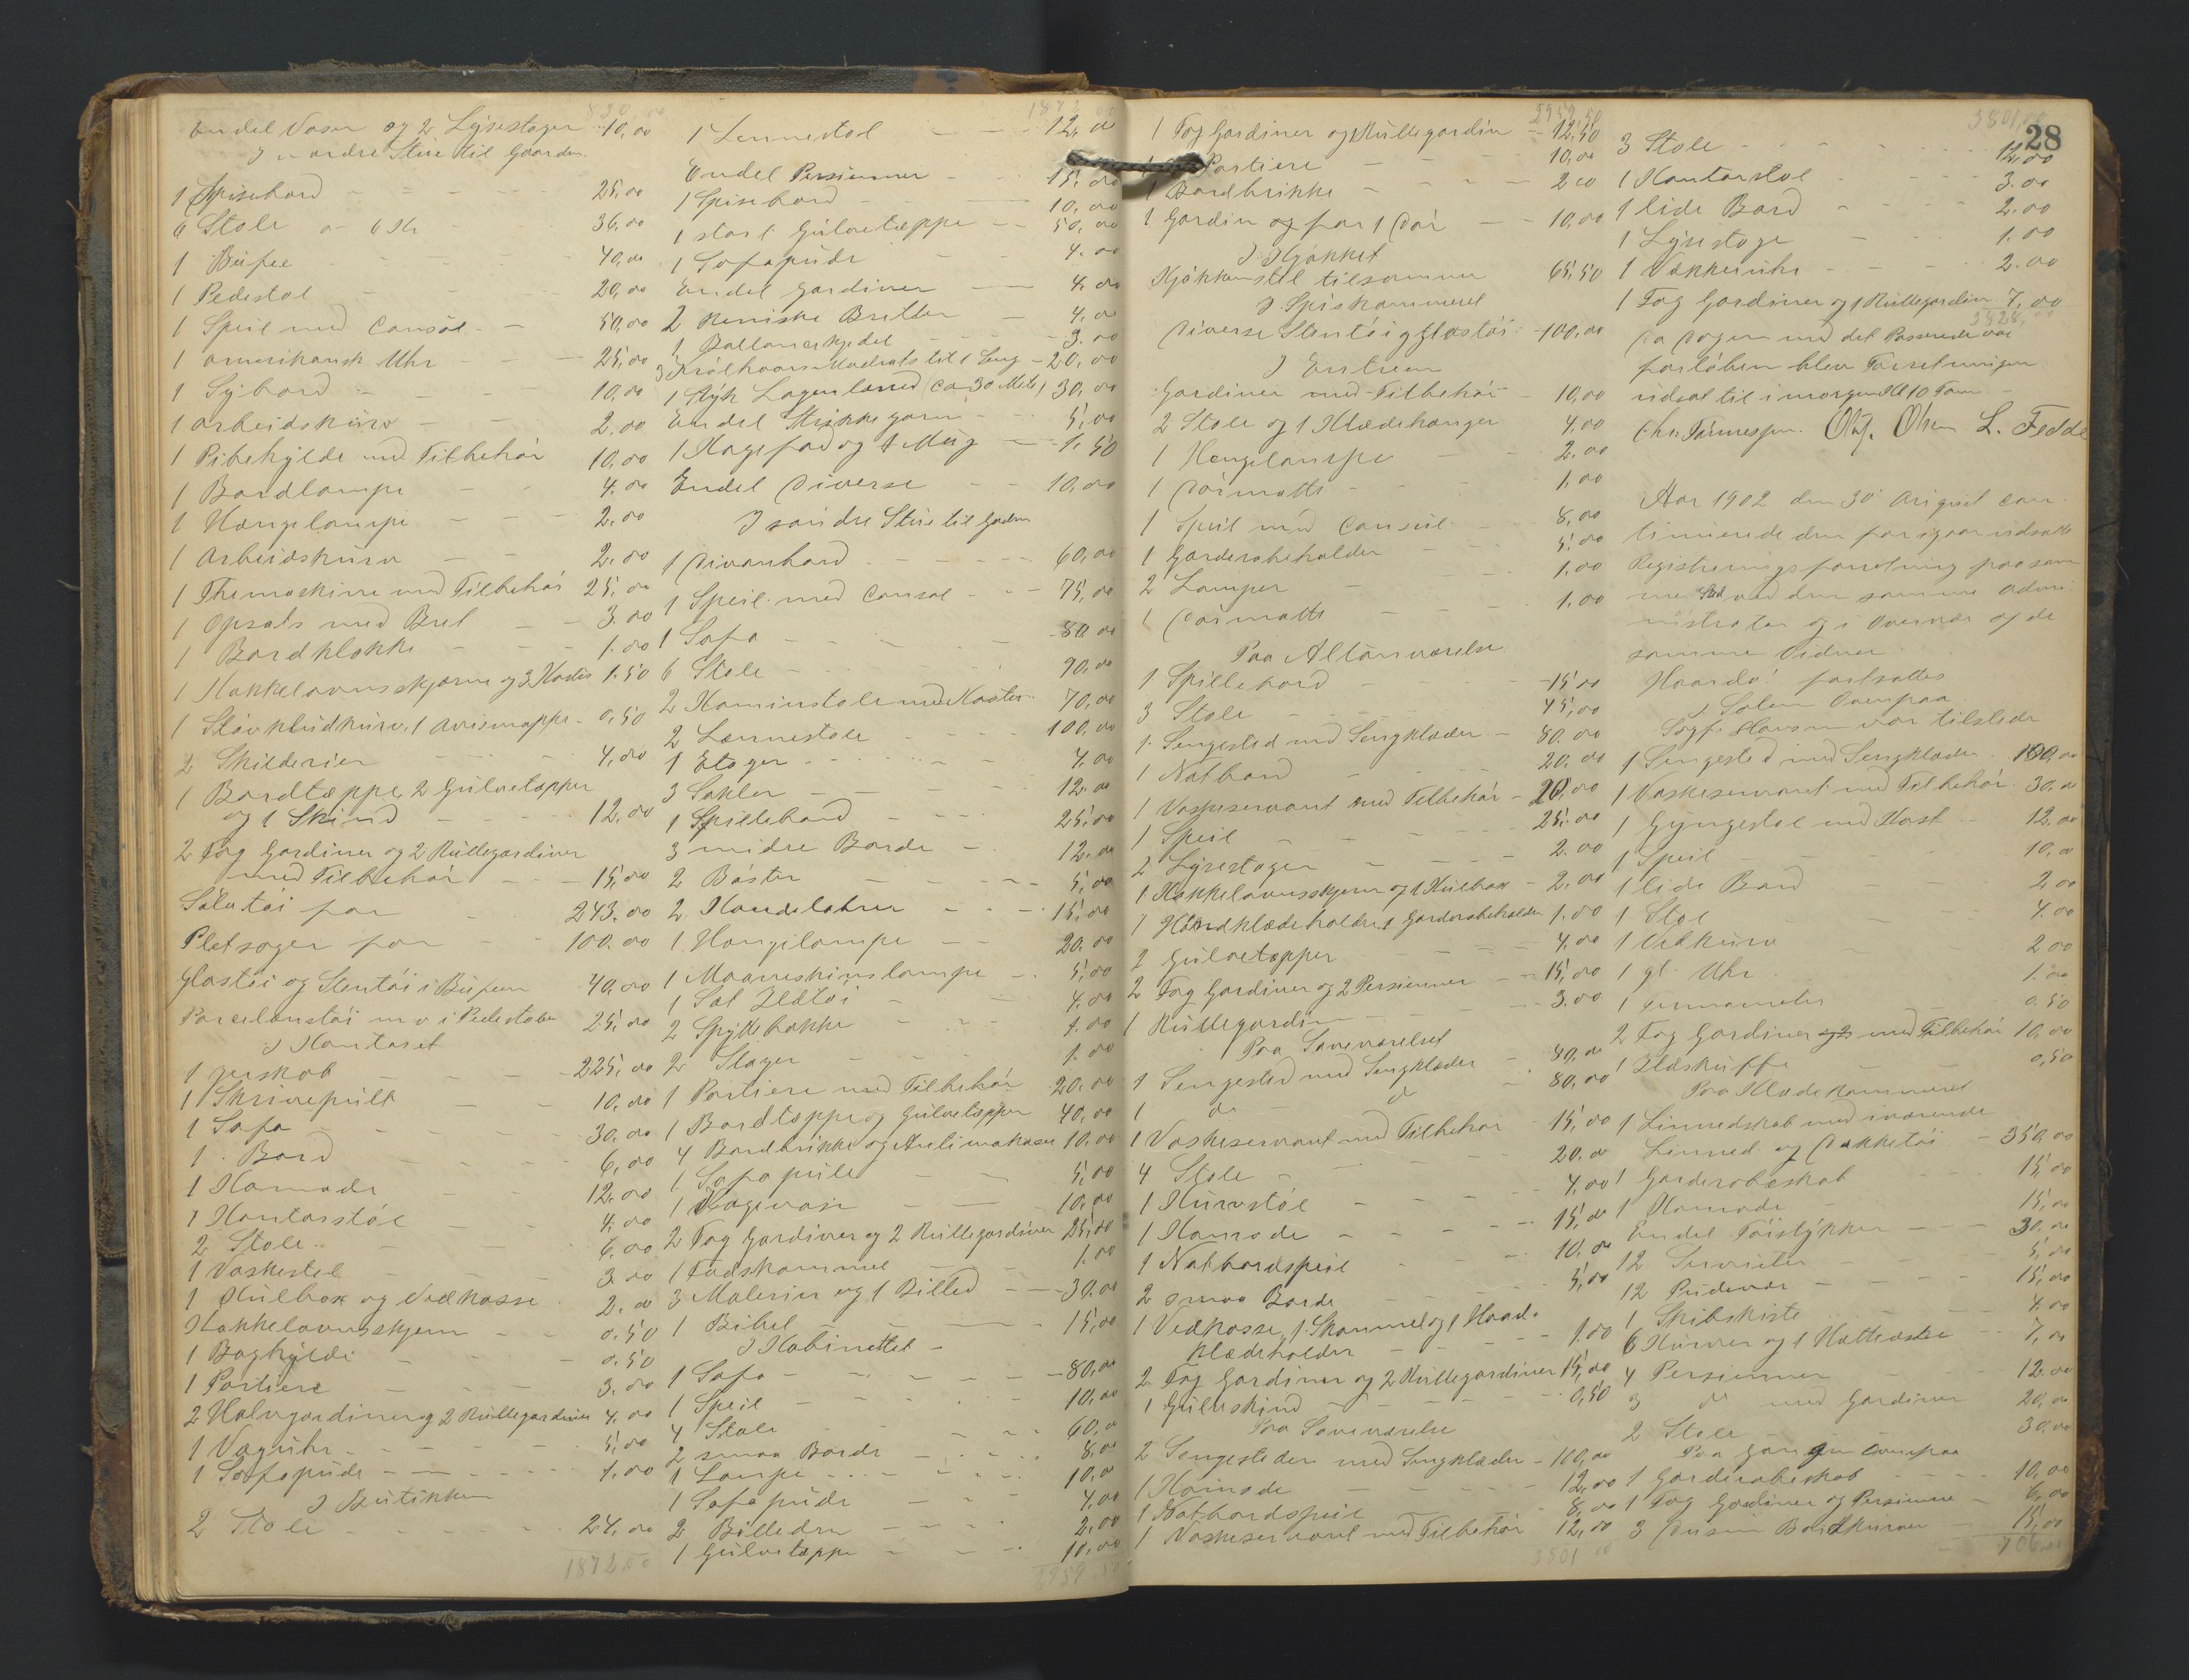 820
Endel Vaser og 2 Lysestager 10,00
I nordre Stue til Gaarden.
1 Spisebord 25,00
6 Stole a 6 Kr 36,00
1 Büfee 40,00
1 Pedestal 20,00
1 Speil med Consol 50,00
1 amerikansk Uhr 25,00
1 Sybord 10,00
1 arbeidskurv 2.00
1 Pibehylde med Tilbehör 10,00
1 Bordlampe 4.00
1 Hængelampe 2.00
1 Arbeidskurv 2.00
1 Themaskine med Tilbehör 25,00
1 Opsats med Bret 3.00
1 Bordklokke 1.00
1 Kakkelovnsskjærm og 3 Kasser 1.50
1 Stövkludkurv, 1 avismappe 0,50
2 Skilderier 4,00
1 Bordtæppe, 2 Gulvetæpper
og 1 Skind 12.00
2 Fag Gardiner og 2 Rullegardiner
med Tilbehör 15,00
Sölvtöi for 243.00
Pletsager for 100.00
Glastöi og Stentöi i Büfeen 40,00
Porcelænstöi m v i Pedestalen 25,00
I Kontoret
1 jerskab 225,00
1 Skrivepult 10,00
1 Sofa 30,00
1 Bord 6,00
1 Komode 12.00
1 Kontorstol 4.00
2 Stole 6.00
1 Vaskestel 3.00
1 Kulbox og Vedkasse 2.00
Kakkelovnsskjerm 0.50
1 Boghylde 0.50
1 Portiere 3.00
2 Halvgardiner og 2 Rullegardiner 4.00
1 Væguhr 5,00
1 Sofapude 1.00
I Butikken
2 Stole 24,00
1872.50
1872
1 Lænestol 12,00
Endel Persienner 15,00
1 Spisebord 10,00
1 stort Gulvetæppe 50,00
1 Sofapude 4.00
Endel Gardiner 4.00
2 Keniske Bretter 4.00
1 Ballancekjedel 3.00
3 Krölhaars Madrats til 1 Seng 20,00
1 Styk Lagenlærred (ca 30 Meter) 30,00
Endel Strikkegarn 5,00
1 Kagefad og 1 Mug 1.50
Endel Diverse 10,00
I söndre Stue til Gaden
1 Divanbord 60,00
1 Speil med Consol 75,00
1 Sofa 80,00
6 Stole 90,00
2 Kaminstole med Kaster 70,00
2 Lænestole 100,00
1 Etager 4.00
3 Sokler 12.00
1 Spillebord 25,00
3 mindre Borde 12.00
2 Böster 5,00
2 Kandelabrer 15,00
1 Hængelampe 20.00
1 Maaneskinslampe 5,00
1 Sæt Ildtöi 4.00
2 Spyttebakke 1.00
2 Stager 1.00
1 Portiere med Tilbehör 20.00
1 Bordtæppe og Gulvetæpper 40,00
4 Bordbrikke og Antimakaser 10,00
1 Sofapute 5,00
1 Kagevase 10,00
2 Fag Gardiner og 2 Rullegardiner 25,00
1 Fodskammel 1.00
3 Malerier og 1 Billed 30.00
1 Bibel 15,00
I Kabinettet
1 Sofa 80,00
1 Speil 10,00
4 Stole 60,00
2 smaa Borde 8,00
1 Lampe 10,00
1 Sofapude 4,00
2 Billeder 2,00
1 Gulvetæppe 10,00
2959.50
2959.50
1 Fag Gardiner og Rullegardin 12,50
Portiere 10,00
1 Bordbrikke 2.00
1 Gardin og for 1 Dör 10,00
I Kjökket
Kjökkenstel tilsammen 65,50
I Spiskammeret
Diverse Stentöi og Glastöi 100,00
I Entreen
Gardiner med Tilbehör 10,00
2 Stole og 1 Klædehænger 4,00
1 Hengelampe 2.00
1 Dörmatte 1,00
1 Speil med Consul 8,00
1 Garderobeholder 5,00
2 Lamper 1.00
1 Dörmatte 1,00
Paa Altanværelse
1 Spillebord 15,00
3 Stole 45,00
1 Sengested med Sengklæder 80.00
1 Natbord 20.00
1 Vaskeservant med Tilbehör 20,00
1 Speil 25,00
2 Lysestager 2.00
1 Kakkelovnsskjerm og 1 Kulbox 2.00
1 Haandklædeholder, 1 Garderobeholder 1.00
2 Gulvetæpper 4.00
2 Fag Gardiner og 2 Persienner 15,00
1 Rullegardin 3.00
Paa Soveværelset
1 Sengested med Sengklæder 80,00
1 do do 80,00
1 Vaskeservant med Tilbehör 15,00
4 Stole 20.00
1 Kurvstol 4,00
1 Komode 15,00
1 Natbordspeil 10,00
2 smaa Borde 5,00
1 Vedkasse, 1 Skammel og 1 Haand-
klædeholder 1.00
2 Fag Gardiner og 2 Rullegardiner 15,00
1 Gulvskind 0,50
Paa Soveværelse
2 Sengesteder med Sengklæder 100,00
1 Komode 12,00
1 Natbordspeil 8,00
1 Vaskeservant med Tilbehör 12,00
3801 00
3801,00
28
3 Stole 12,00
1 Kontorstol 3.00
1 lide Bord 2.00
1 Lysestage 1.00
1 Vækkeruhr 2.00
1 Fag Gardiner og 1 Rullegardin 7,00
3828,00
Da Dagen med det Passerede var
forlöben blev Forretningen
udsat til imorgen Kl 10 Form
Chr. Tönnesen. Olaf Olsen L. Fedde
Aar 1902 den 30 August con-
tinuerede den forigaar udsatte
Registreringsforretning paa sam-
me Sted ved den samme admi-
nistrator og i Overvær af de
samme Vidner.
Hvorda! fortsattes
I Salen Ovenpaa
Sagf. Hansen var tilstede
1 Sengested med Sengklæder 100,00
1 Vaskeservant med Tilbehör 30,00
1 Gyngestol med Kast 12,00
1 Speil 10,00
1 lide Bord 2,00
1 Stol 4.00
1 Vedkurv 2.00
1 gl. Uhr 1.00
1 Termometer 0.50
2 Fag Gardiner og 2 med Tilbehör 10.00
1 Ildskuffe 0,50
Paa Klædekammeret
1 Linnedskab med iværende
Linned og Dækketöi 350,00
1 Garderobeskab 15,00
1 Komode 15,00
Endel Töistykker 30,00
12 Servieter 5,00
12 Pudevar 15,00
1 Skibskiste 4.00
6 Kurver og 1 Hatteæske 7,00
4 Persienner 12.00
3 do med Gardiner 20,00
2 Stole 30.00
Paa Gangen Ovenpaa
1 Garderobeskab 10,00
1 Fag Gardiner og Persienne 6,00
3 Dusin Bordkurver 15,00
706,00